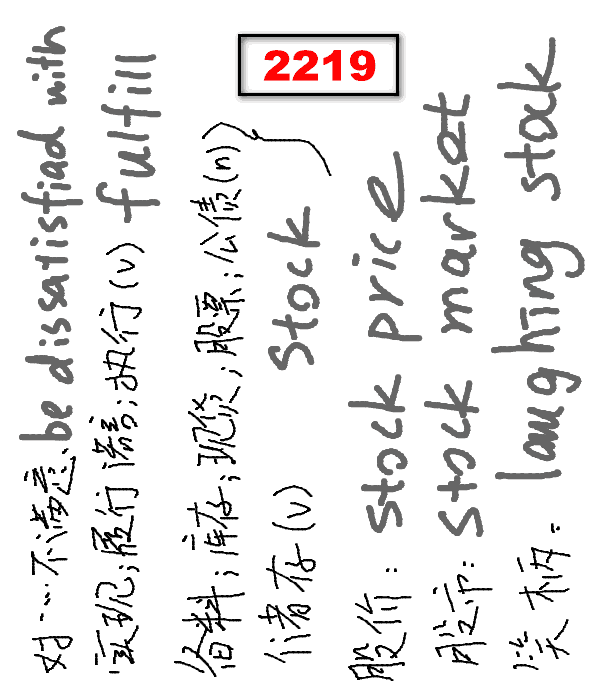 2219
对…不满意、be dissatisfiad with
实现;履行诺言;执行(v) fulfill
备料;库存;现货;股票;公债(n)
储存(v) stock
股价: stock price
股市: stock market
笑柄: laughing stock